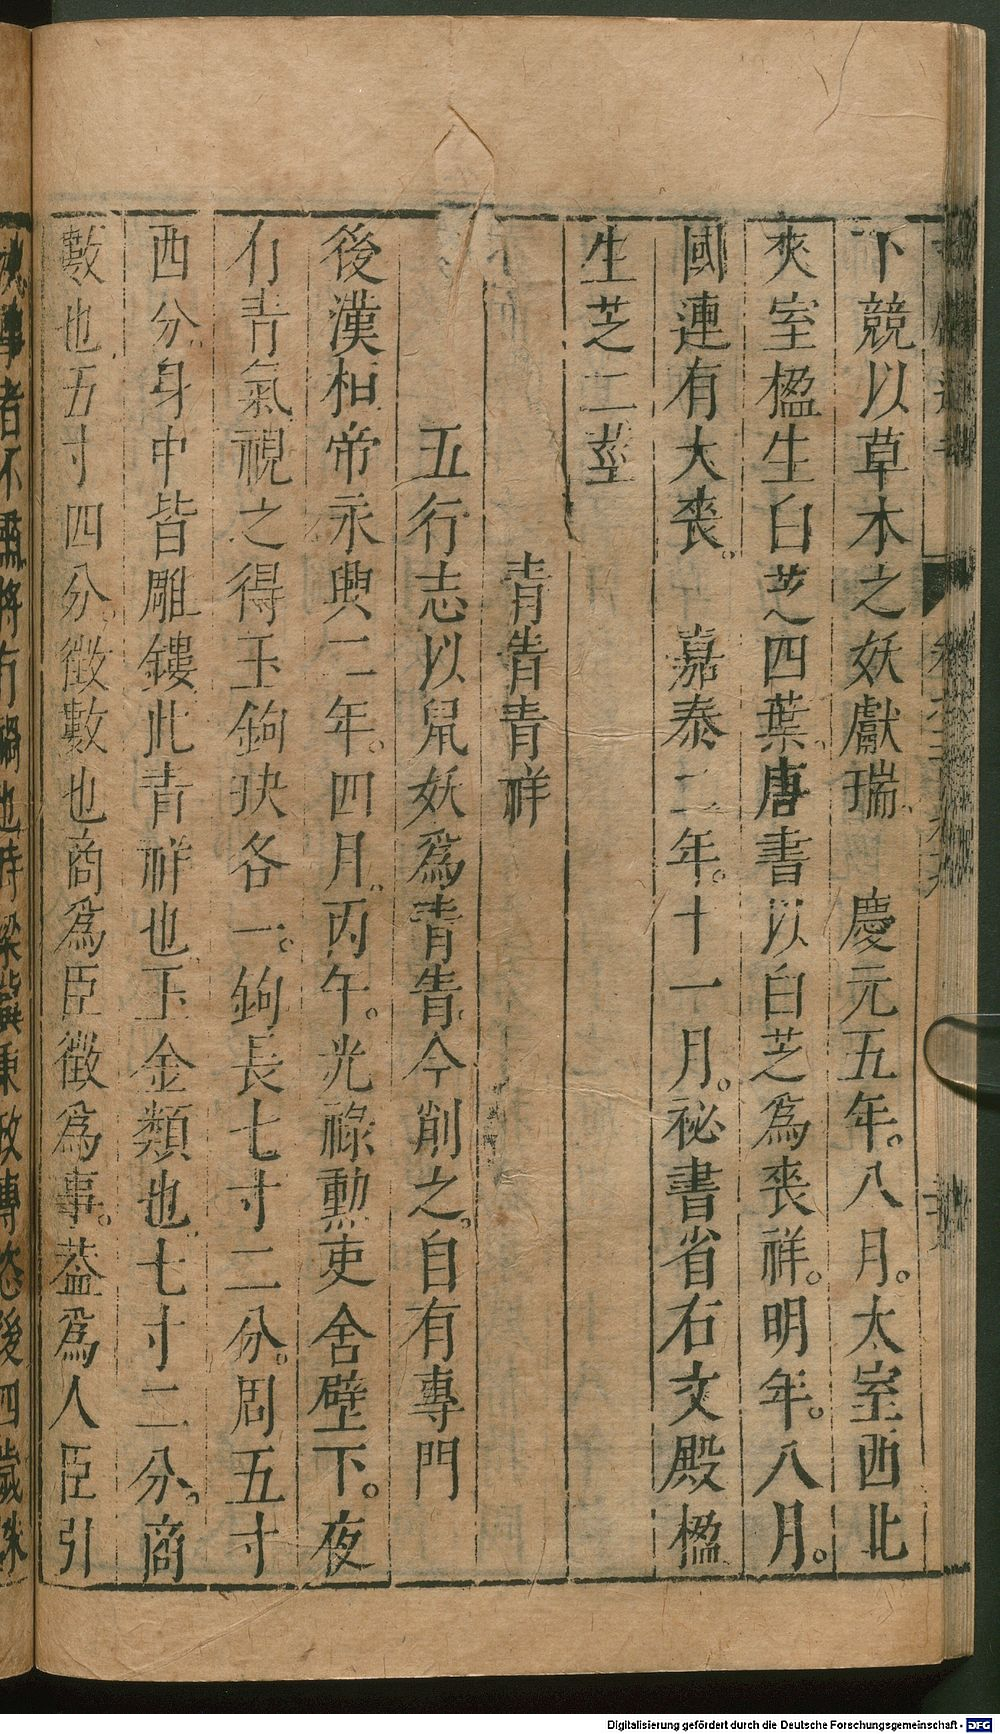 下競以草木之妖獻瑞　慶元五年。八月。太室西北
夾室楹生白芝四葉。唐書以白芝爲丧祥。明年。八月。
國連有大丧。　嘉泰二年。十一月。祕書省石文殿楹
生芝二莖
青眚青祥
五行志以鼠妖爲青眚。今削之。自有專門
後漢桓帝永興二年。四月。丙午。光祿勳吏舍壁下。夜
有青氣。視之得玉鉤玦各一。鉤長七寸二分。周五寸
四分。身中皆雕鏤此青祥也。玉金類也。七寸二分。商
數也五寸四分。徵數也商爲臣徵爲事。葢爲人臣引
決事者不肅將有禍也時梁冀秉政專恣後四歲誅
Digitalisierung gefördert durch die Deutsche Forschungsgemeinschaft - DFG